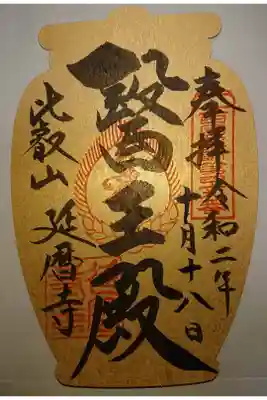 奉拝 令和二年
十月十八日
醫王殿
比叡山 延暦寺